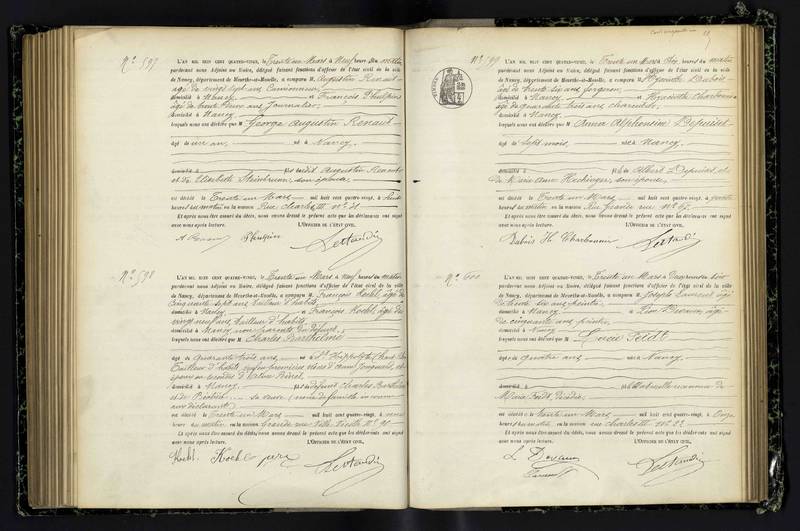 No 597
L'AN MIL HUIT CENT QUATRE-VINGT, le Trente un Mars à Neuf heures du matin
pardevant nous Adjoint au Maire, délégué faisant fonctions d'officier de l'état civil de la ville
de Nancy, département de Meurthe-et-Moselle, a comparu M. Augustin Renaut
âgé de vingt sept ans
domicilié à Nancy et François Thulpin
âgé de trente ans Journalier
domicilié à Nancy
lesquels nous ont déclaré que M George Augustin Renaut
âgé de un an, né à Nancy
domicilié à fils dudit Augustin Renaut
et de Elisabeth Steinbrunn, son épouse
est décédé le Trente un Mars mil huit cent quatre-vingt, à
heures du matin en la maison Rue Charles III No 31
Et après nous être assuré du décès, nous avons dressé le présent acte que les déclarants ont signé
avec nous après lecture. L'OFFICIER DE L'ÉTAT CIVIL,
No 598
L'AN MIL HUIT CENT QUATRE-VINGT, le Trente un Mars à neuf heures du matin
pardevant nous Adjoint au Maire, délégué faisant fonctions d'officier de l'état civil de la ville
de Nancy, département de Meurthe-et-Moselle, a comparu M. François Kochl, âgé de
cinquante sept ans tailleur d'habits
domicilié à Nancy et François Kochl, âgé de
vingt neuf ans, tailleur d'habits
domicilié à Nancy, non parents du défunt
lesquels nous ont déclaré que M Charles Barthelmé
âgé de quarante trois ans, né à St Hippolyte
Tailleur d'habits veuf en premières noces d'Anne
époux en secondes d'
domicilié à Nancy fils de défunt Charles Barthelmé
et de sa veuve (nom de famille in connu
aux déclarants)
est décédé le Trente un Mars mil huit cent quatre-vingt, à
heures du matin en la maison Grande rue Ville Vieille No 90
Et après nous être assuré du décès, nous avons dressé le présent acte que les déclarants ont signé
avec nous après lecture. L'OFFICIER DE L'ÉTAT CIVIL,
Kochl Kochl père
No 599
L'AN MIL HUIT CENT QUATRE-VINGT, le Trente un Mars Dix heures du matin
pardevant nous Adjoint au Maire, délégué faisant fonctions d'officier de l'état civil de la ville
de Nancy, département de Meurthe-et-Moselle, a comparu M. Hyacinthe Dubois
âgé de trente six ans forgeron
domicilié à Nancy et Hyacinthe Charbonn
âgé de quarante trois ans
domicilié à Nancy
lesquels nous ont déclaré que M Anna Alphonsine Depuiset
âgée de Sept mois, née à Nancy
domicilié à fille de Albert Depuiset et
de Marie Anne Hechinger, son épouse
est décédée le Trente un Mars mil huit cent quatre-vingt, à quatre
heures du matin en la maison Rue
Et après nous être assuré du décès, nous avons dressé le présent acte que les déclarants ont signé
avec nous après lecture. L'OFFICIER DE L'ÉTAT CIVIL,
Dubois H. Charbonn
No 600
L'AN MIL HUIT CENT QUATRE-VINGT, le Trente un Mars à Deux heures du soir
pardevant nous Adjoint au Maire, délégué faisant fonctions d'officier de l'état civil de la ville
de Nancy, département de Meurthe-et-Moselle, a comparu M. Joseph Laurent âgé
de trente six ans peintre
domicilié à Nancy et Léon âgé
de cinquante ans peintre
domicilié à Nancy
lesquels nous ont déclaré que M Lucie Feidt
âgée de quatre ans née à Nancy
domicilié à fille naturelle reconnue de
Marie Feidt
est décédée le trente un Mars mil huit cent quatre-vingt, à Onze
heures du matin en la maison rue Charles III No 23
Et après nous être assuré du décès, nous avons dressé le présent acte que les déclarants ont signé
avec nous après lecture. L'OFFICIER DE L'ÉTAT CIVIL,
Laurent